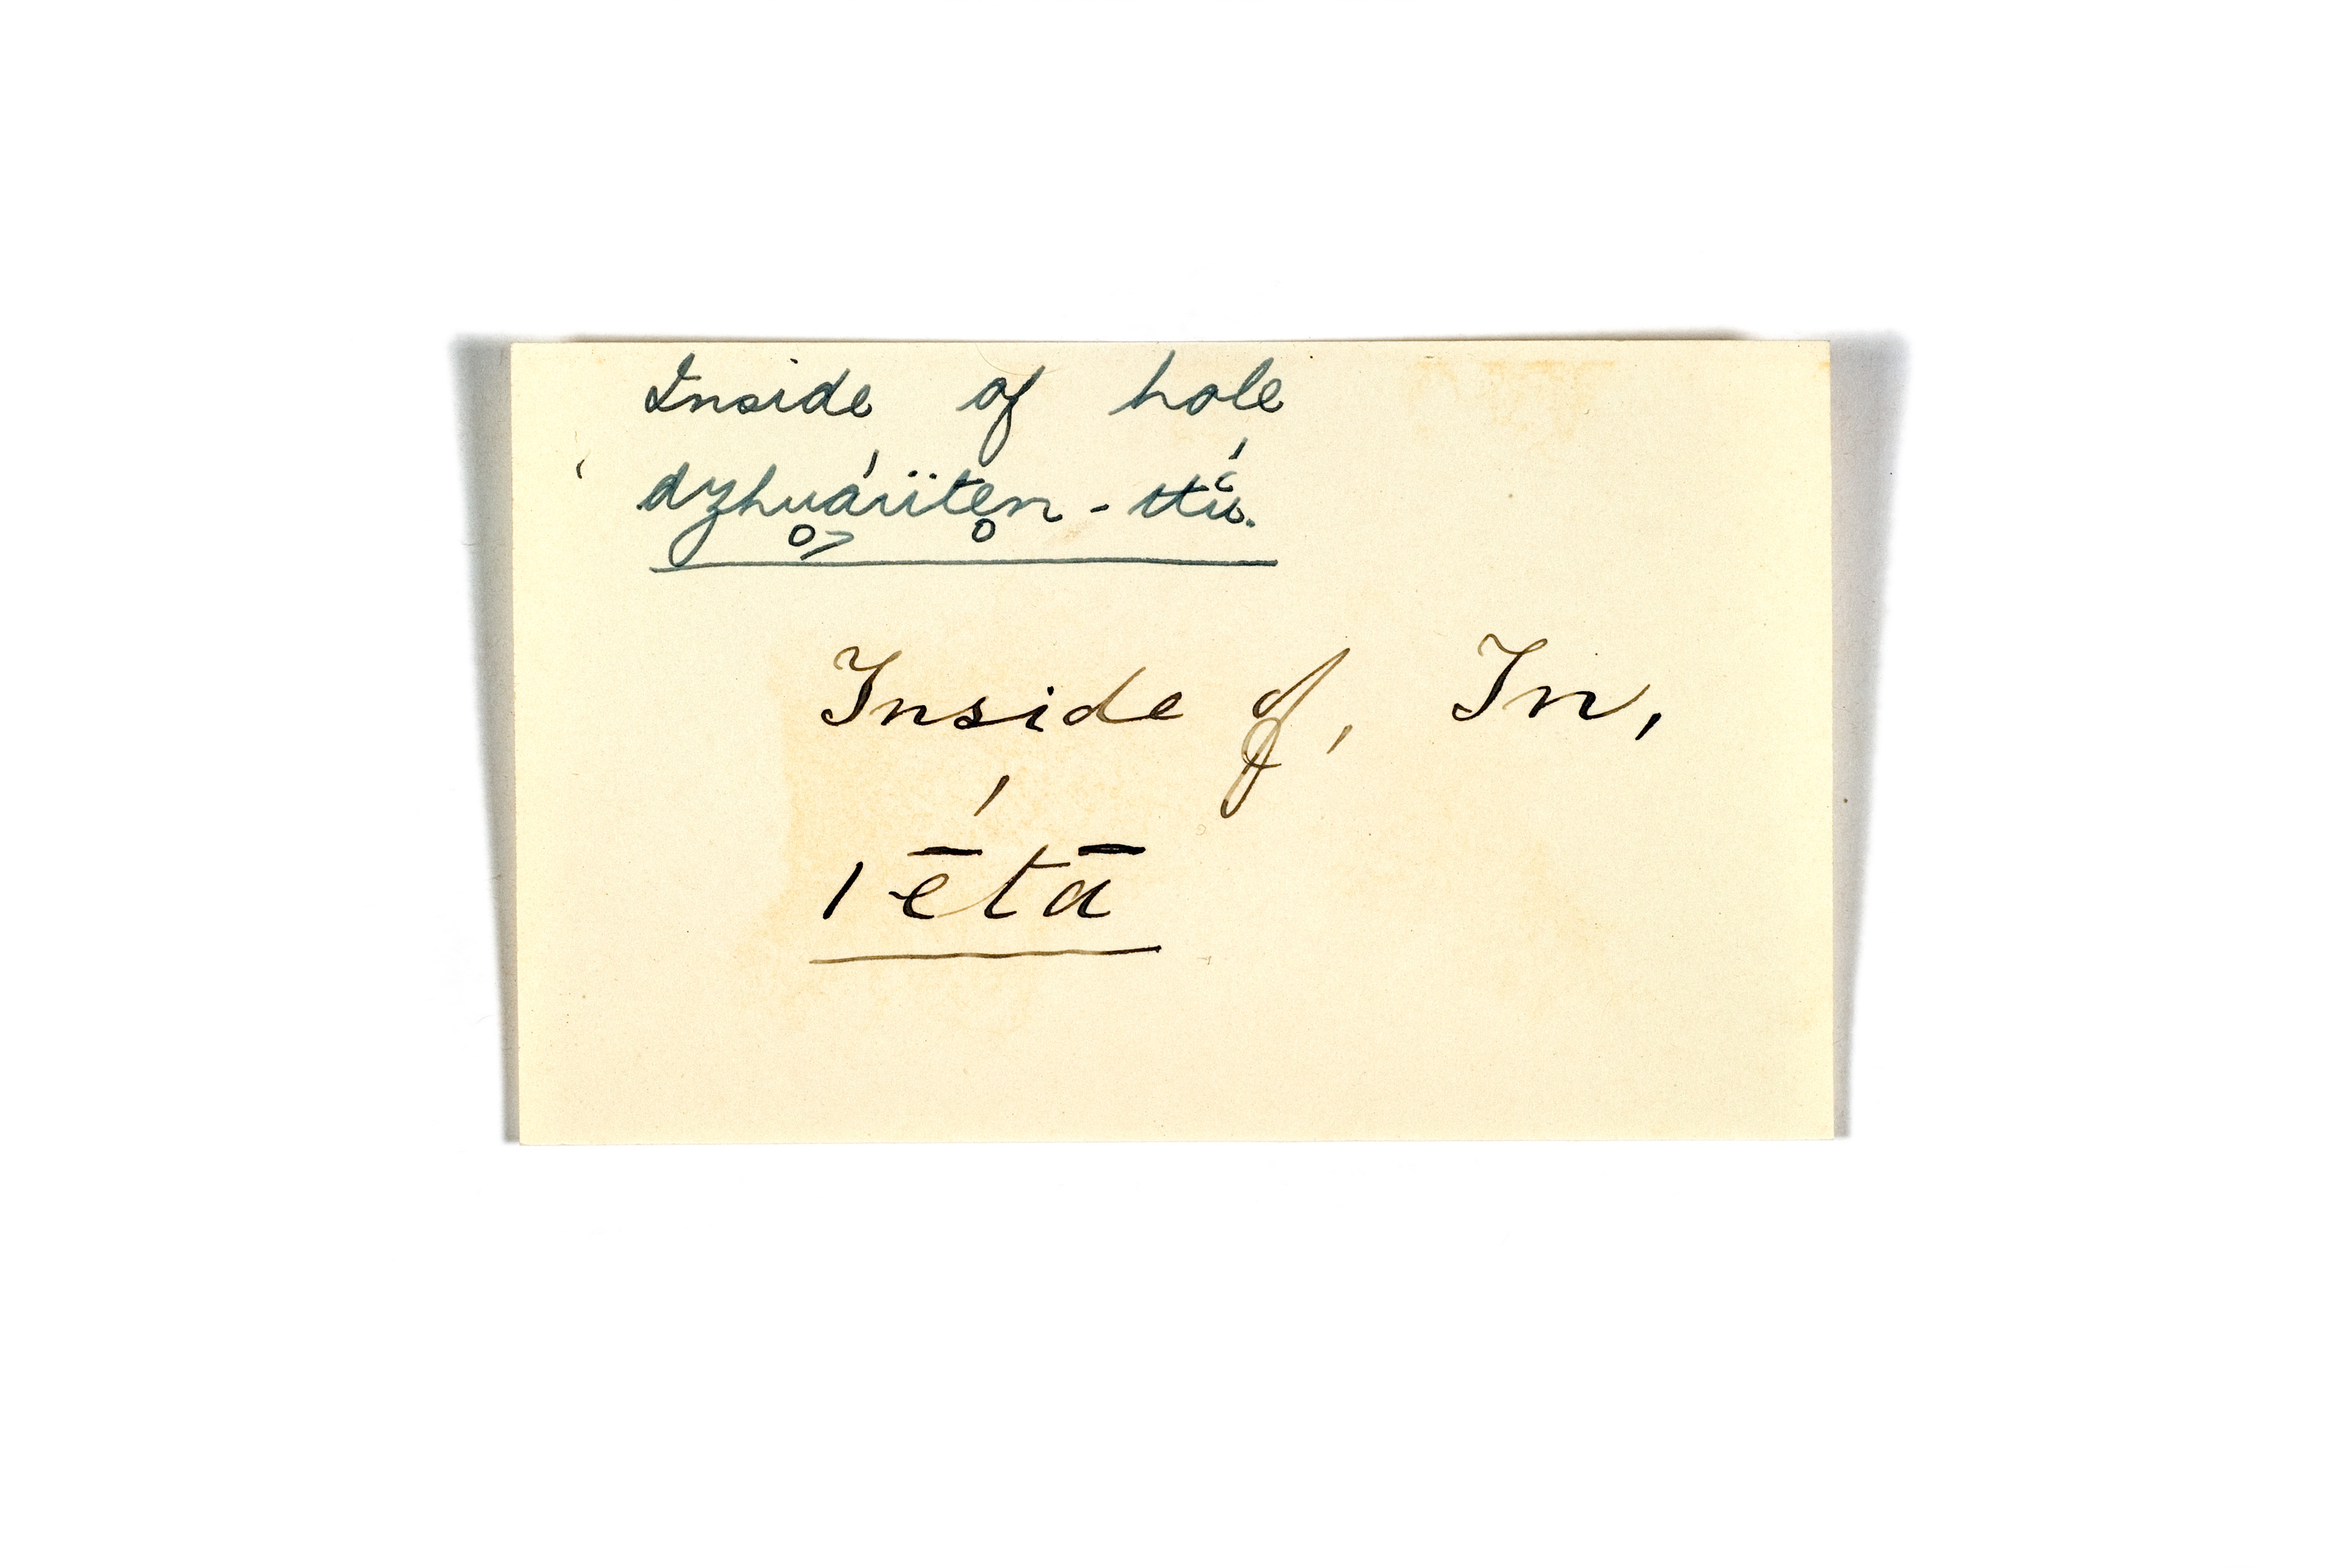 Inside of hole
dzhuárïten - 
Inside of, In,
iḗtā